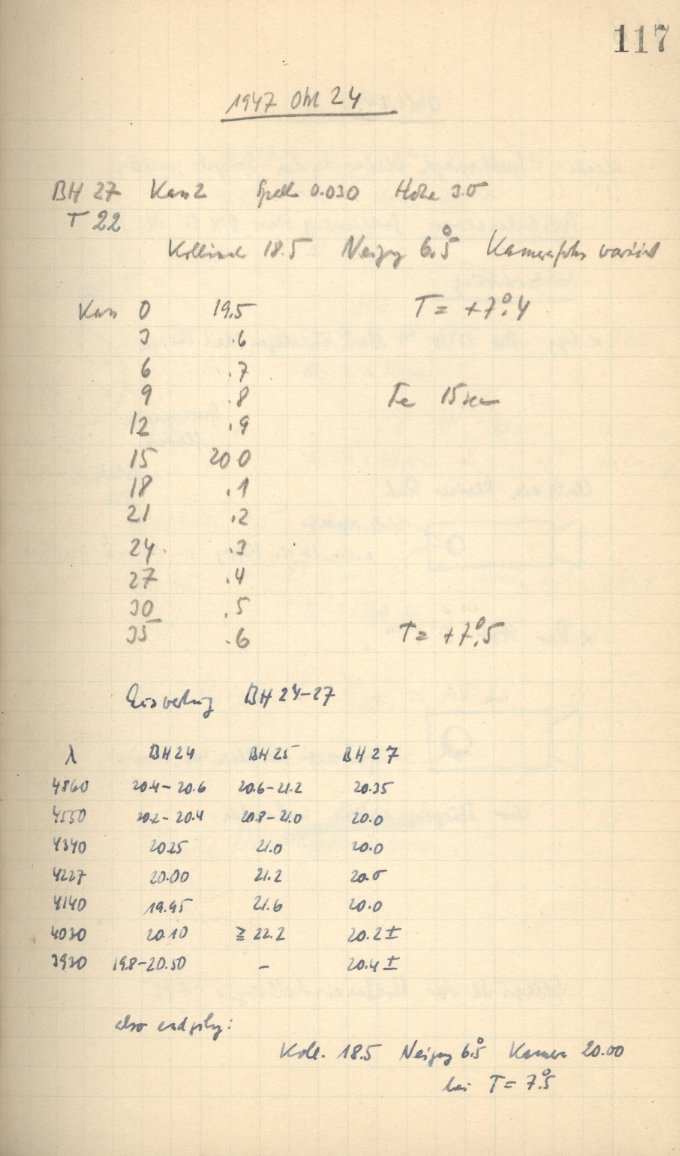 117
1947 Okt 24
BH 27 Kass 2 Spalt 0.030 Höhe 3.0
T 22
Kollim 18.5 Neigg 6°.5 Kamerafokus variiert
Kass 0 19.5 T = +7°.4
3 .6
6 .7
9 .8 15 sec
12 .9
15 20 0
18 .1
21 .2
24 .3
27 .4
30 .5
35 .6 T = +7°.5
BH 24-27
λ BH 24 BH 25 BH 27
4860 20.4-20.6 20.6-21.2 20.35
4550 20.2-20.4 20.8-21.0 20.0
4340 20.25 21.0 20.0
4227 20.00 21.2 20.0
4140 19.95 21.6 20.0
4030 20.10 ≥ 22.2 20.2 ±
3930 19.8-20.50 - 20.4 ±
also endgültig:
Koll. 18.5 Neigg 6°.5 Kamera 20.00
bei T = 7°.5